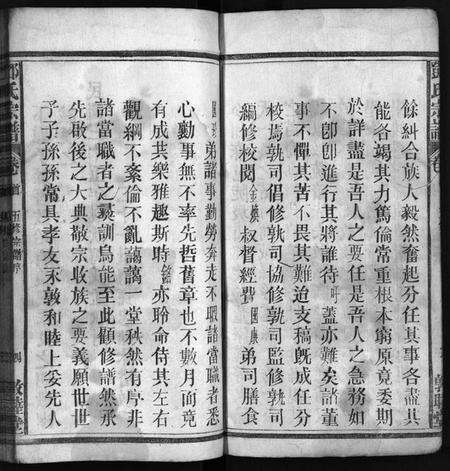 餘糾合族人毅然奮起分任其事各盡其
能各竭其力篤倫常重根本窮原竟委期
於詳盡是吾人之要任是吾人之急務如
不卽卽進行其將誰待吁蓋亦難矣諸董
事不憚其苦不畏其難迨支稿旣成任分
校焉孰司倡修孰司協修孰司監修孰司
編修校閱 叔督經費 弟司膳食
弟諸事勤勞奔走不暇諸當職者悉
心勷事無不率先哲舊章也不數月而竟
有成共樂雅趣斯時 亦聆命侍其左右
觀綱不紊倫不亂譪譪一堂秩然有序非
諸當職者之尋訓烏能至此顧修譜然承
先啟後之大典敬宗收族之要義願世世
子子孫孫常具孝友永敦和睦上妥先人
氏宗譜 卷首 五修宗譜序